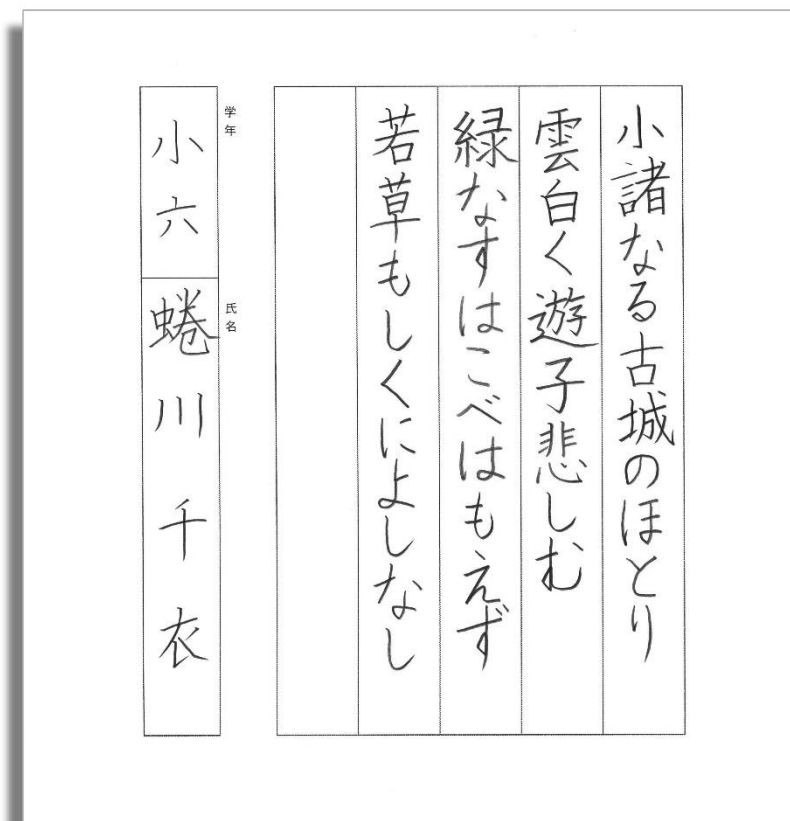 小諸なる古城のほとり
雲白く遊子悲しむ
緑なすはこべはもえず
若草もしくによしなし
学年
小六
氏名
蜷川千衣